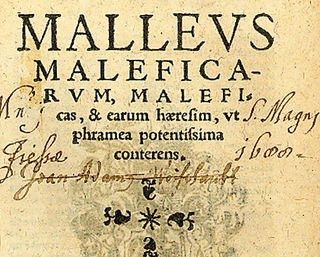 MALLEVS
MALEFICA-
RVM, MALEFI-
cas, & earum hæresim, vt
phramea potentissima
conterens.
S. Magni
Fiessæ
1688
Joan Adam